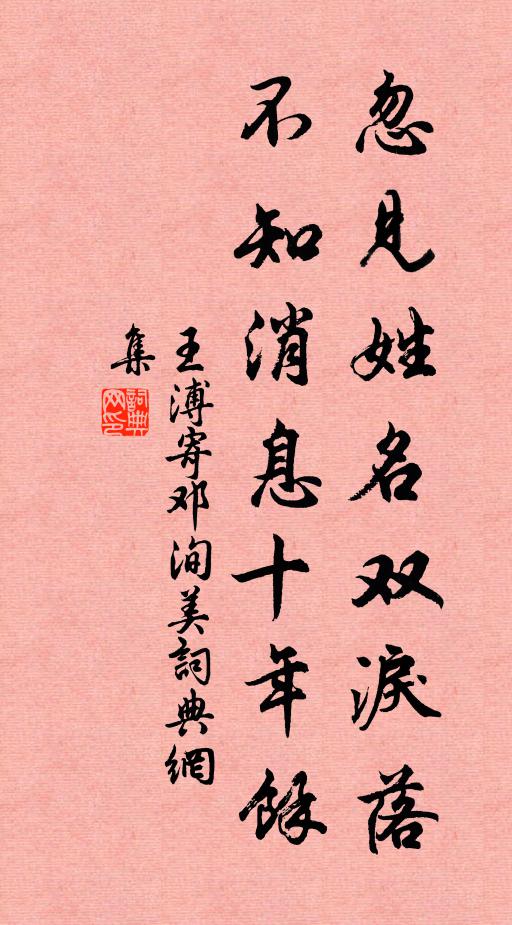 忽见姓名双淚落
不知消息十年餘
王溥寄邓洵美詞典網
集
詞典
网印